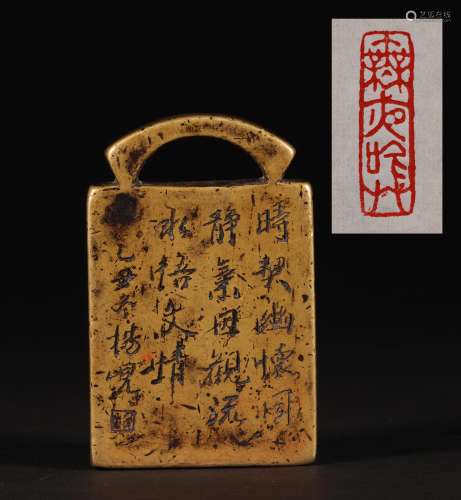 時契幽懷同
静氣因觀流
水悟文情
乙丑冬楊峴
艺狐在线